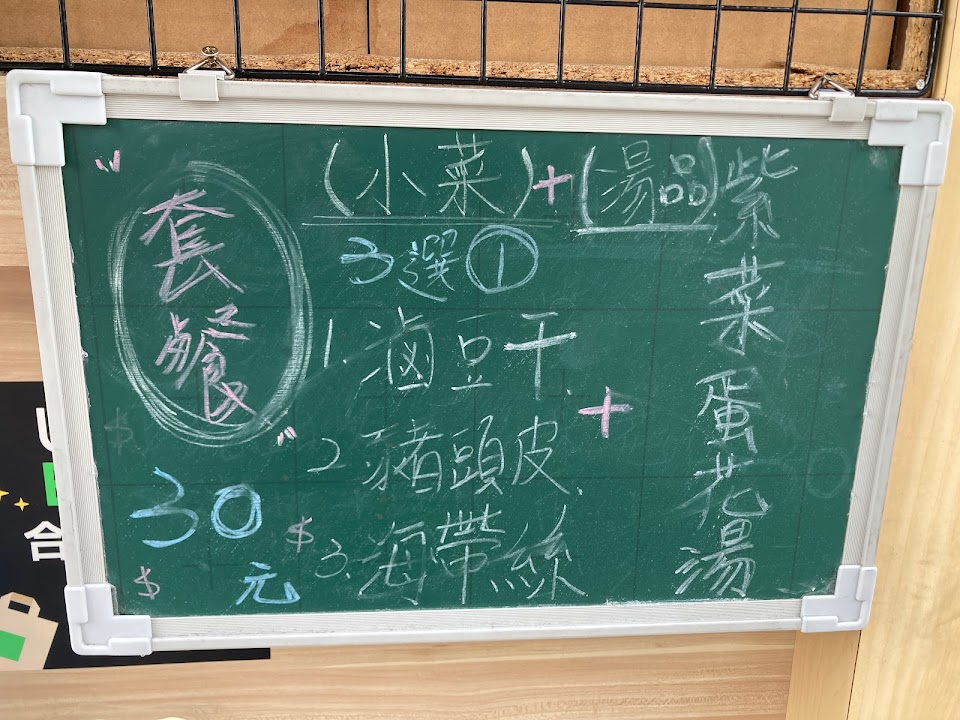 "套餐"
30元
(小菜)+(湯品)
3選①
1.滷豆干
2.豬頭皮
3.海帶絲
+
紫菜蛋花湯
$
$
合